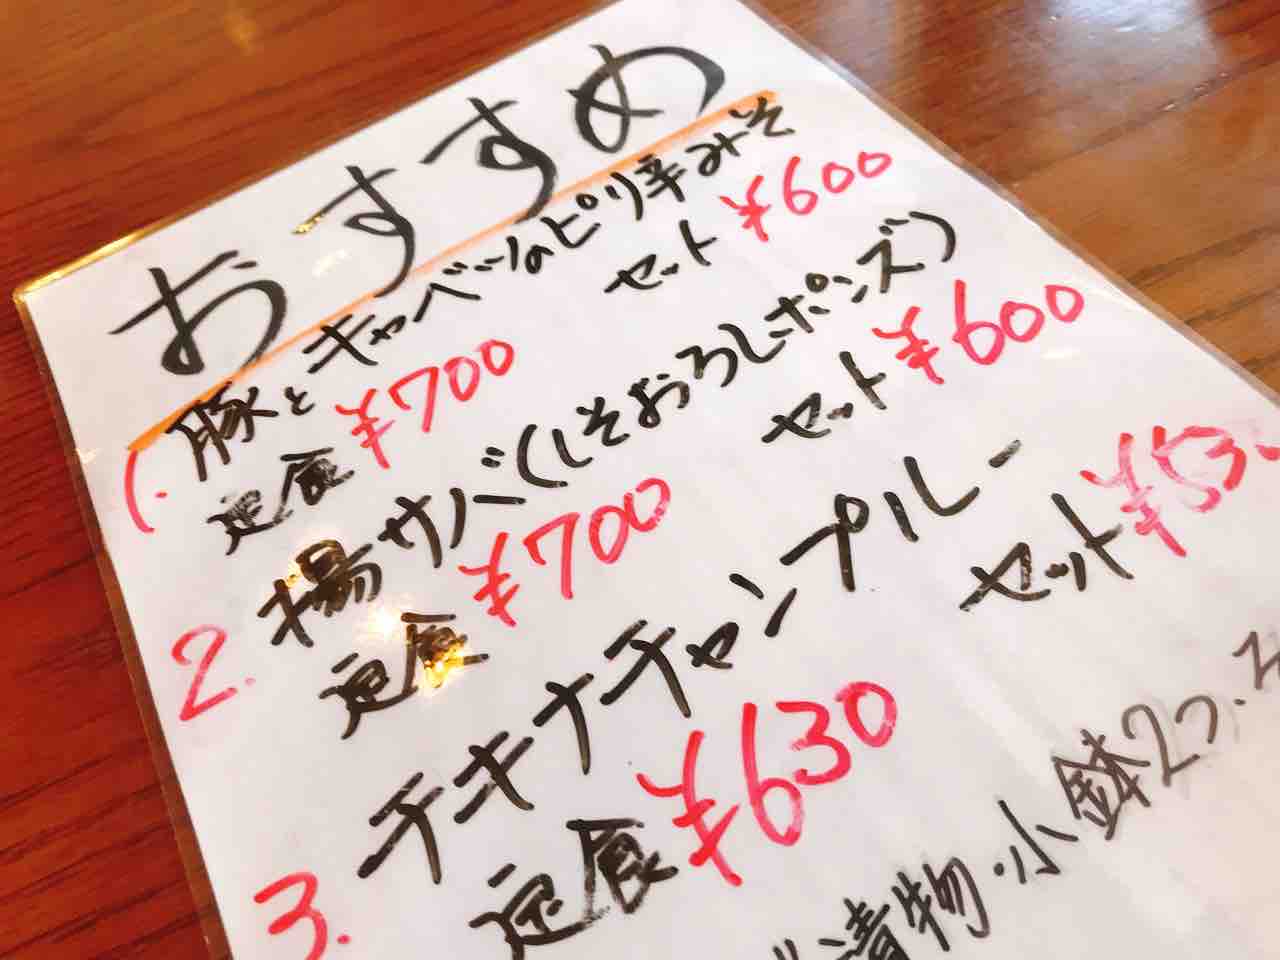 おすすめ
1. 豚とキャベツのピリ辛みそ
定食 ¥700 セット ¥600
2. 揚サバ(しそおろしポンズ)
定食 ¥700 セット ¥600
3. チキナーチャンプルー
定食 ¥630 セット ¥53
漬物・小鉢2つ・